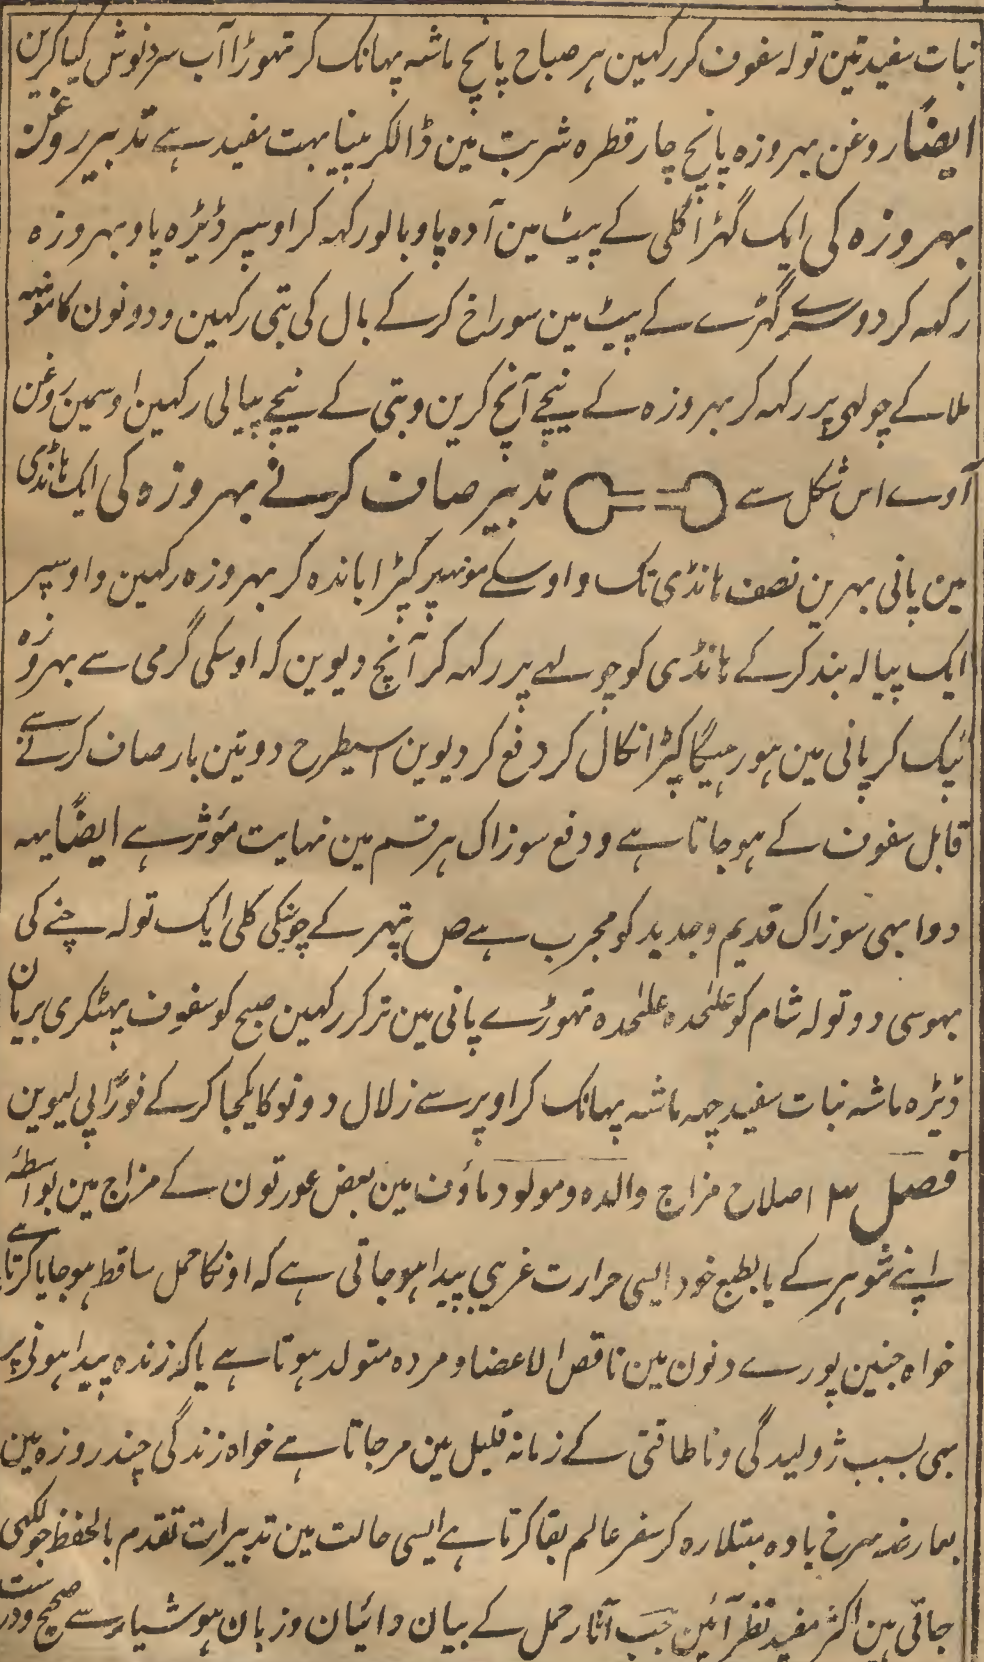 نبات سفید تین تولہ سفوف کر رکہین ہر صباح پانچ ماشہ پہانک کر تہوڑا آب سرد نوش کیا کرین
ایضًا روغن بہروزہ پانچ چار قطرہ شربت مین ڈالکر پینا بہت مفید ہے تدبیر روغن
بہروزہ کی ایک گہڑا گلی کے پیٹ مین آدہ پاو بالو رکہہ کر اوسپر ڈیڑہ پاو بہروزہ
رکہہ کر دوسرے گہڑے کے پیٹ مین سوراخ کر کے بال کی بتی رکہین و دونون کا مونہہ
ملا کے چولہی پر رکہہ کر بہروزہ کے نیچے آنچ کرین و بتی کے نیچے پیالی رکہین اوسمین روغن
آوے اس شکل سے تدبیر صاف کرنے بہروزہ کی ایک ہانڈی
مین پانی بہرین نصف ہانڈی تک و اوسکے مونہہ پر کپڑا باندہ کر بہروزہ رکہین و اوسپر
ایک پیالہ بند کر کے ہانڈی کو چولہے پر رکہہ کر آنچ دیوین کہ اوسکی گرمی سے بہروزہ
ٹپک کر پانی مین ہو رہیگا کپڑا نکال کر دفع کر دیوین اسیطرح دو تین بار صاف کرنے سے
قابل سفوف کے ہو جاتا ہے و دفع سوزاک ہر قسم مین نہایت مؤثر ہے ایضًا یہہ
دوا بہی سوزاک قدیم و جدید کو مجرب ہے ص پتہر کے چونیکی کلی ایک تولہ چنے کی
بہوسی دو تولہ شام کو علٰحدہ علٰحدہ تہوڑے پانی مین تر کر رکہین صبح کو سفوف پہٹکری بریان
ڈیڑہ ماشہ نبات سفید چہہ ماشہ پہانک کر اوپر سے زلال دونو کا یکجا کر کے فورًا پی لیوین
فصل ۳ اصلاح مزاج والدہ و مولود ماؤف مین بعض عورتون کے مزاج مین بواسطۂ
اپنے شوہر کے یا بطبع خود ایسی حرارت غریبی پیدا ہو جاتی ہے کہ اونکا حمل ساقط ہو جایا کرتا ہے
خواہ جنین پورے دنون مین ناقص الاعضا و مردہ متولد ہوتا ہے یا کہ زندہ پیدا ہونی پر
بہی بسبب ژولیدگی و ناطاقتی کے زمانہ قلیل مین مر جاتا ہے خواہ زندگی چند روزہ مین
بعارضہ سرخ بادہ مبتلا رہ کر سفر عالم بقا کرتا ہے ایسی حالت مین تدبیرات تقدم بالحفظ جو لکہی
جاتی ہین اکثر مفید نظر آئین جب آثار حمل کے بیان دائیان و زبان ہوشیار سے صحیح و درست